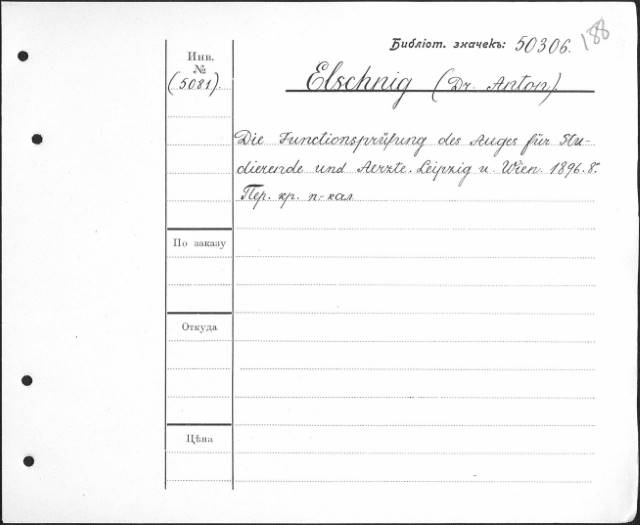 188
Библіот. значекъ: 50306.
Инв.
№
(5081).
Elschnig (Dr. Anton).
Die Functionsprüfung des Auges für Stu-
dierende und Aerzte. Leipzig u. Wien. 1896. 8°.
Пер. кр. п-кал
По заказу
Откуда
Цѣна